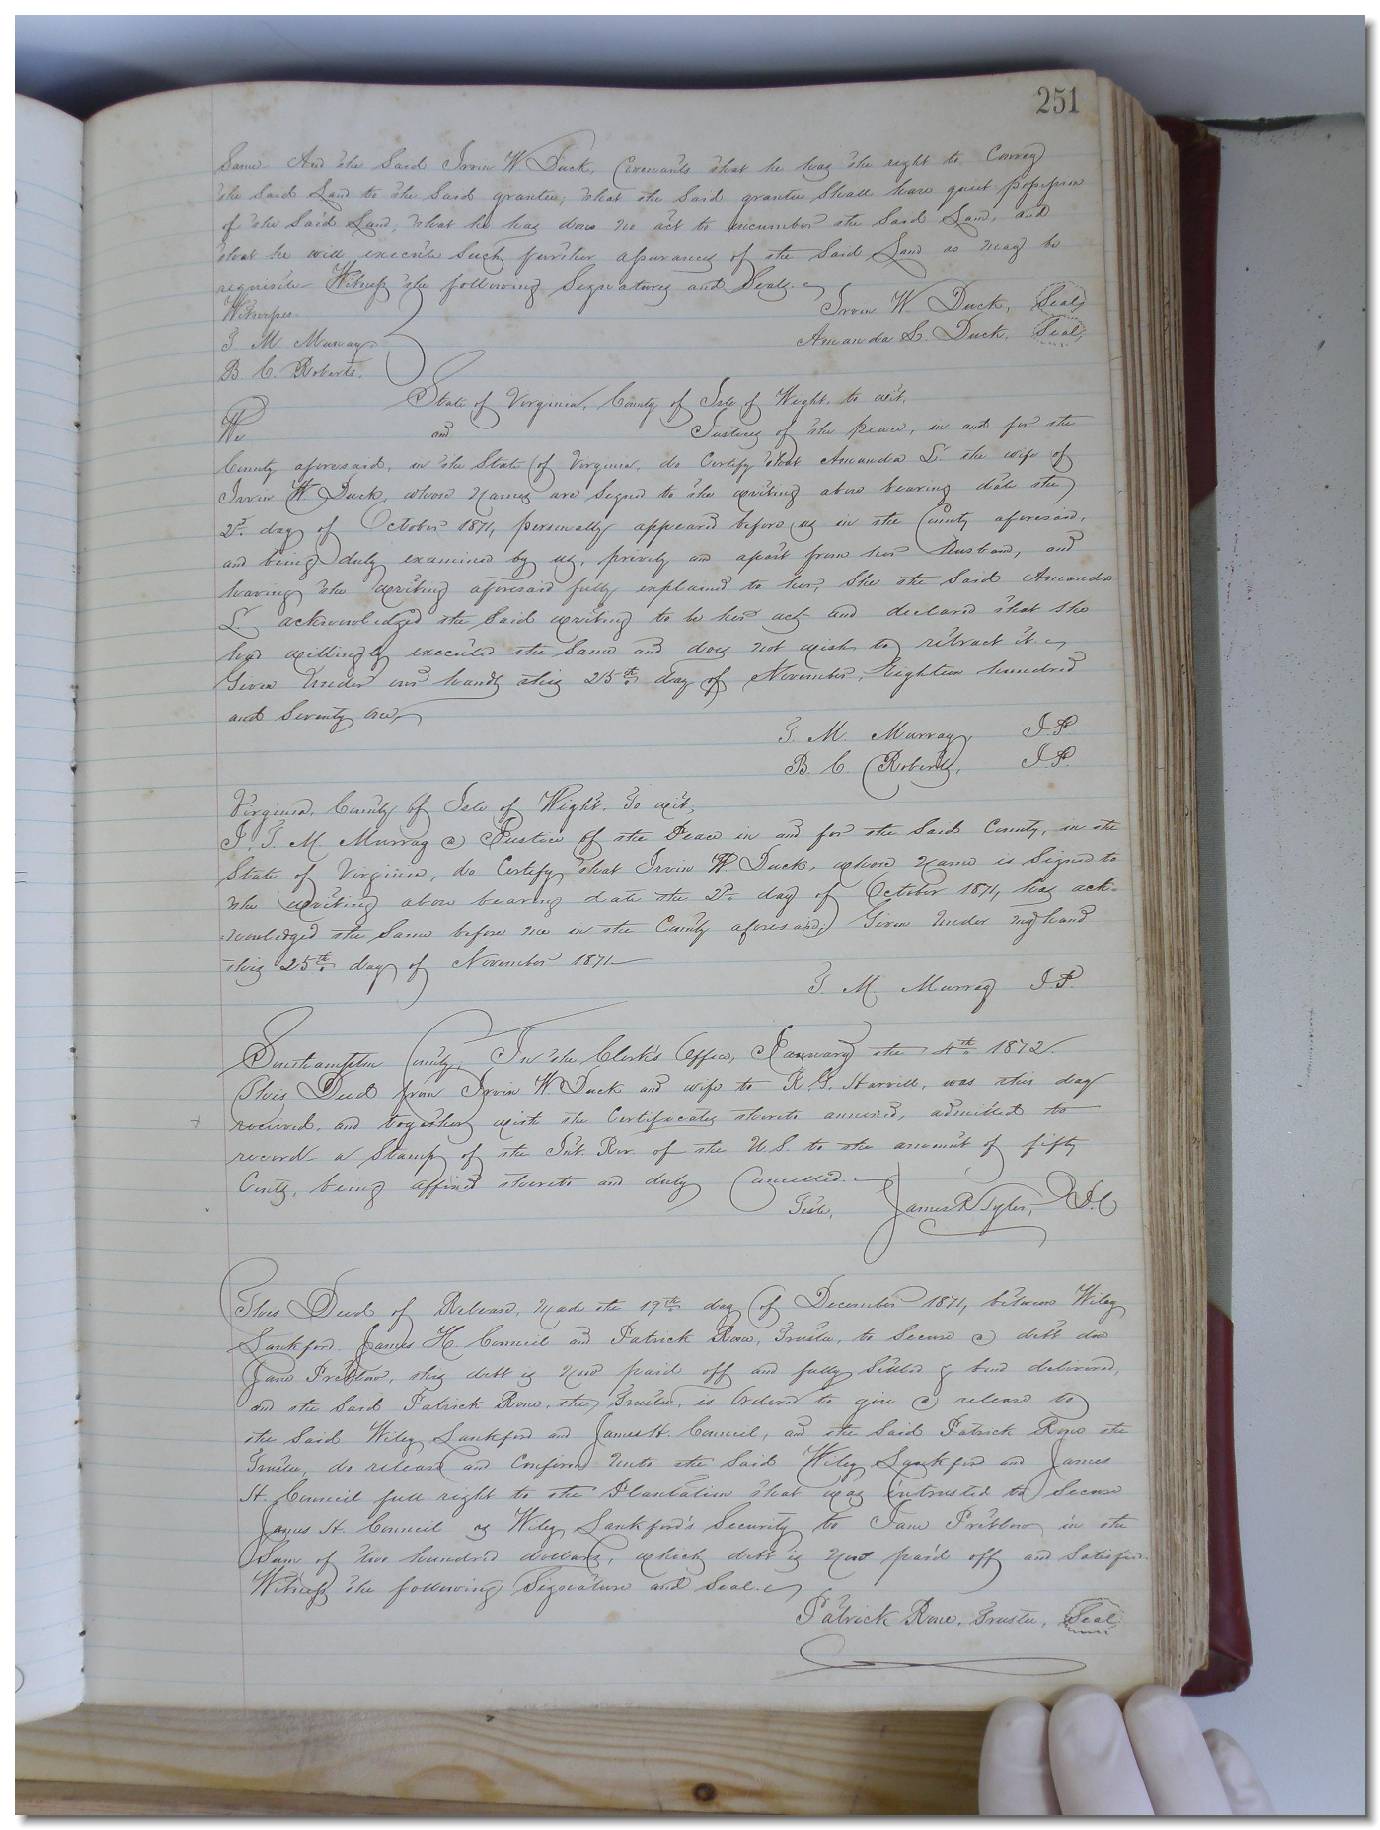 251
Same And the Said Irvin W Duck, Covenants that he has the right to Convey
the Said Land to the Said grantee, that the Said grantee Shall have quiet possession
of the Said Land, that he has done no act to incumber the Said Land, and
that he will execute Such further assurances of the Said Land as may be
requisite Witness the following Signatures and Seals.
Irvin W. Duck, Seal
Witnesses
Amanda L. Duck. Seal
T M Murray
B. C. Roberts.
State of Virginia, County of Isle of Wight, to wit,
We and Justices of the peace, in and for the
County aforesaid, in the State of Virginia, do Certify that Amanda L. the wife of
Irvin W Duck, whose names are Signed to the writing above bearing date the
2d. day of October 1871, personally appeared before us in the County aforesaid,
and being duly examined by us, privily an apart from her Husband, and
having the writing aforesaid fully explained to her, She the Said Amanda
L. acknowledged the Said writing to be her act and declared that She
had willingly executed the Same and does not wish to retract it.
Given Under our hands this 25th day of November, Eighteen hundred
and Seventy One,
T. M. Murray, J.P.
B. C. Roberts, J.P.
Virginia, County of Isle of Wight. To wit,
I. T. M Murray a Justice of the Peace in and for the Said County, in the
State of Virginia, do Certify that Irvin W Duck, whose name is Signed to
the writing above bearing date the 2d. day of October 1871, has ack-
nowledged the Same before me in the County aforesaid, Given Under my hand
this 25th day of November 1871
T. M. Murray J.P.
Southampton County, In the Clerk's Office, January the 4th 1872.
This Deed from Irvin W. Duck and wife to R G. Harvill, was this day
received, and together with the Certificates thereto annexed, admitted to
record a Stamp of the Int. Rev. of the U.S. to the amount of fifty
Cents, being affixed thereto and duly Cancelled.
Teste, James R Tyler, D.C
This Deed of Release, Mad the 19th day of December 1871, between Wiley
Lankford James H. Council and Patrick Rose, Trustee, to Secure a debt due
Jane Pretlow, this debt is now paid off and fully Settled & bond delivered,
and the Said Patrick Rose, the Trustee, is Ordered to give a release to
the Said Wiley Lankford and James H. Council, and the Said Patrick Rose the
Trustee, do release and Confirm Unto the Said Wiley Lankford and James
H. Council full right to the Plantation that was intrusted to Secure
James H. Council as Wiley Lankford's Security to Jane Pretlow in the
Sum of two hundred dollars, which debt is now paid off and Satisfied.
Witness the following Signature and Seal.
Patrick Rose, Trustee, Seal